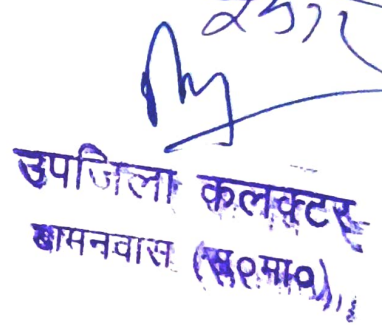 उपजिला कलक्टर
बामनवास (स०मा०)